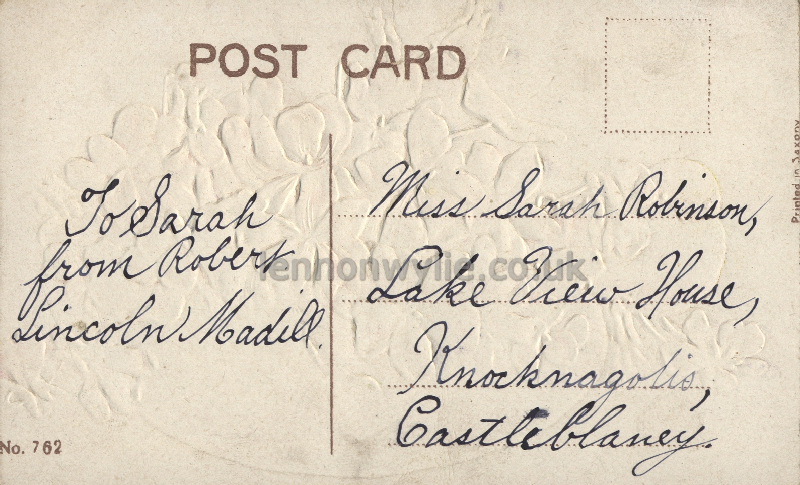 POST CARD
To Sarah
from Robert
Lincoln Madill.
Miss Sarah Robinson,
Lake View House,
Knocknagolis,
Castleblaney.
lennonwylie.co.uk
Printed in Saxony
No. 762